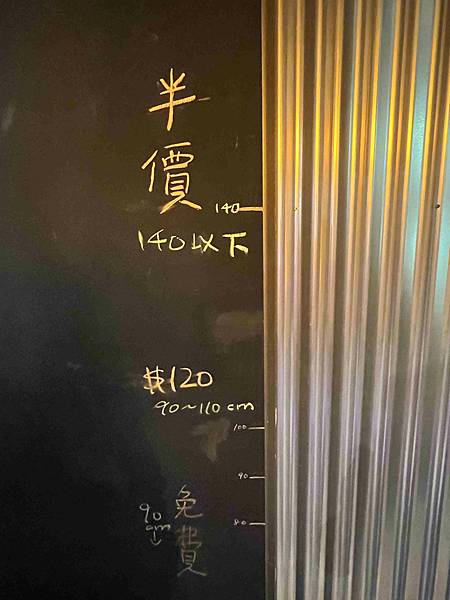 半價
140
140以下
$120
90~110cm
100
90
80
90cm↓
免費